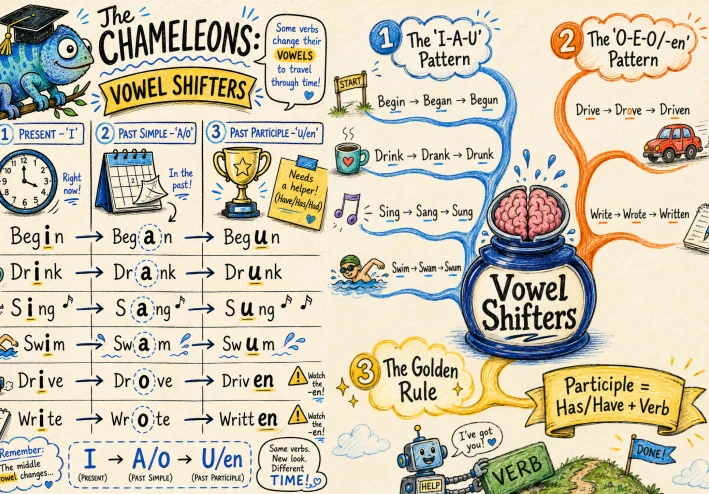 The
CHAMELEONS:
VOWEL SHIFTERS
Some verbs
change their
VOWELS
to travel
through time!
1 PRESENT - 'I'
2 PAST SIMPLE - 'A/o'
3 PAST PARTICIPLE - 'u/en'
Right
now!
In the
past!
Needs
a helper!
(Have/Has/Had)
Begin → Began → Begun
Drink → Drank → Drunk
Sing → Sang → Sung
Swim → Swam → Swum
Drive → Drove → Driven
Watch
the
-en!
Write → Wrote → Written
Watch
the
-en!
Remember:
The middle
vowel changes...
I → A/O → U/en
(PRESENT) (PAST SIMPLE) (PAST PARTICIPLE)
Same verbs.
New look.
Different
TIME!
1 The 'I-A-U'
Pattern
START
Begin → Began → Begun
Drink → Drank → Drunk
Sing → Sang → Sung
Swim → Swam → Swum
2 The 'O-E-O/-en'
Pattern
Drive → Drove → Driven
Write → Wrote → Written
Vowel
Shifters
3 The Golden
Rule
Participle =
Has/Have + Verb
I've got
you!
HELP
VERB
DONE!